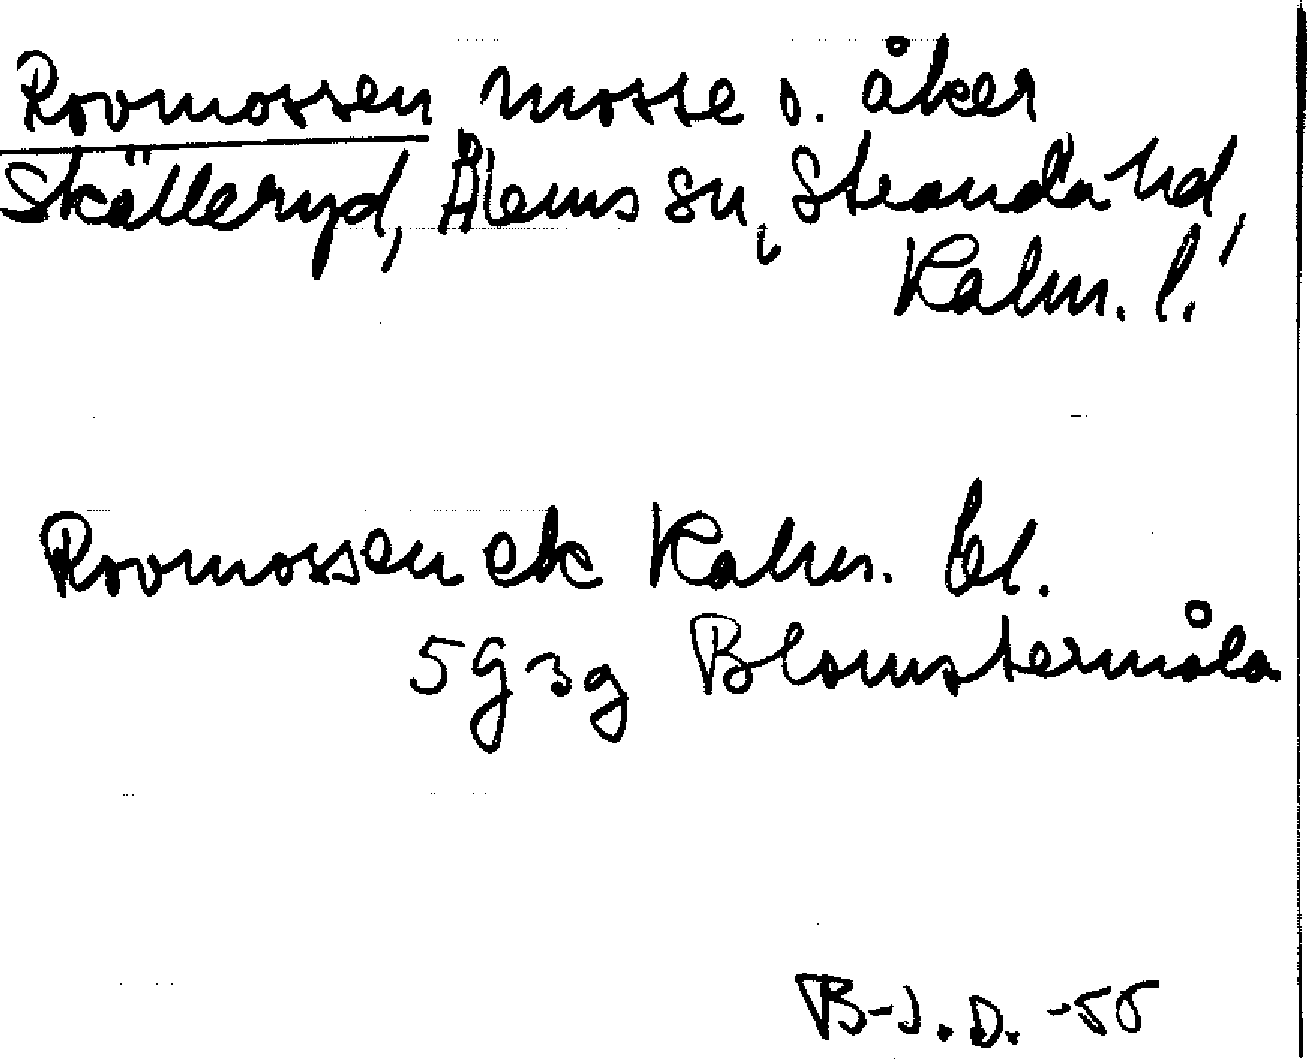 Rovmossen mosse o. åker
Skälleryd, Ålems sn, Stranda hd,
Kalm. l.
Rovmossen ek Kalm. bl.
5G3g Blomstermåla
B-J.D. -55